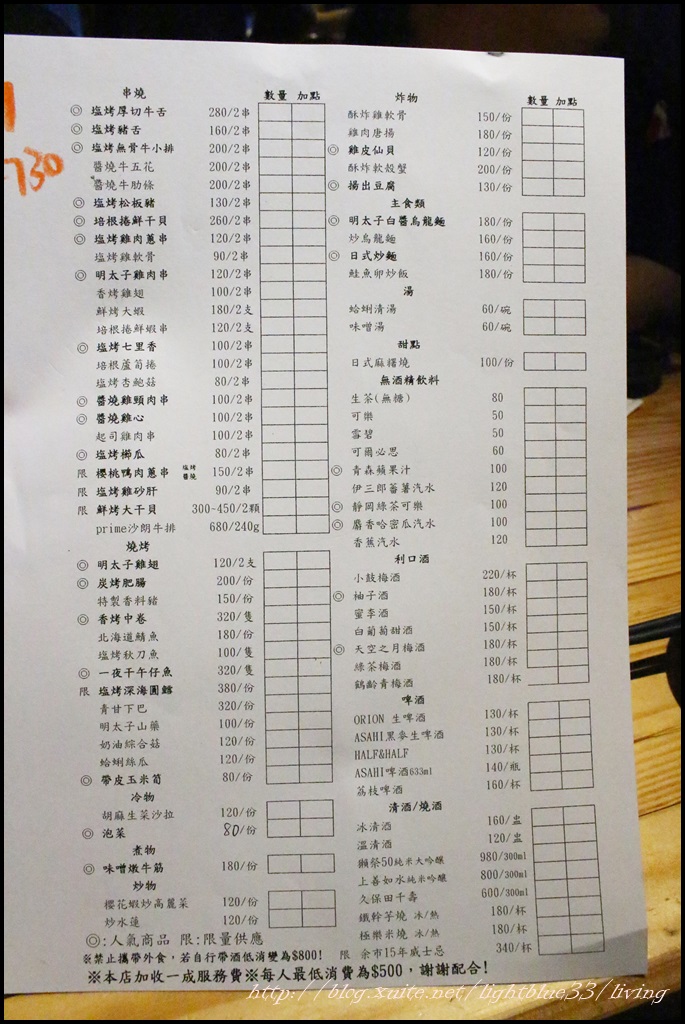 730
串燒 數量 加點
◎ 塩烤厚切牛舌 280/2串
◎ 塩烤豬舌 160/2串
◎ 塩烤無骨牛小排 200/2串
醬燒牛五花 200/2串
醬燒牛肋條 200/2串
◎ 塩烤松板豬 130/2串
◎ 培根捲鮮干貝 260/2串
◎ 塩烤雞肉蔥串 120/2串
塩烤雞軟骨 90/2串
◎ 明太子雞肉串 120/2串
香烤雞翅 100/2串
鮮烤大蝦 180/2支
培根捲鮮蝦串 120/2支
◎ 塩烤七里香 100/2串
培根蘆筍捲 100/2串
塩烤杏鮑菇 80/2串
◎ 醬燒雞頸肉串 100/2串
◎ 醬燒雞心 100/2串
起司雞肉串 100/2串
◎ 塩烤櫛瓜 80/2串
限 櫻桃鴨肉蔥串 塩烤 醬燒 150/2串
限 塩烤雞砂肝 90/2串
限 鮮烤大干貝 300-450/2顆
prime沙朗牛排 680/240g
燒烤
◎ 明太子雞翅 120/2支
◎ 炭烤肥腸 200/份
特製香料豬 150/份
◎ 香烤中卷 320/隻
北海道鯖魚 180/份
塩烤秋刀魚 100/隻
◎ 一夜干午仔魚 320/隻
限 塩烤深海圓鱈 380/份
青甘下巴 320/份
明太子山藥 100/份
奶油綜合菇 120/份
蛤蜊絲瓜 120/份
◎ 帶皮玉米筍 80/份
冷物
胡麻生菜沙拉 120/份
◎ 泡菜 80/份
煮物
◎ 味噌燉牛筋 180/份
炒物
櫻花蝦炒高麗菜 120/份
炒水蓮 120/份
炸物 數量 加點
酥炸雞軟骨 150/份
雞肉唐揚 180/份
◎ 雞皮仙貝 120/份
酥炸軟殼蟹 200/份
◎ 揚出豆腐 130/份
主食類
◎ 明太子白醬烏龍麵 180/份
炒烏龍麵 160/份
◎ 日式炒麵 160/份
鮭魚卵炒飯 180/份
湯
蛤蜊清湯 60/碗
味噌湯 60/碗
甜點
日式麻糬燒 100/份
無酒精飲料
生茶(無糖) 80
可樂 50
雪碧 50
可爾必思 60
◎ 青森蘋果汁 100
伊三郎蕃薯汽水 120
◎ 靜岡綠茶可樂 100
◎ 麝香哈密瓜汽水 100
香蕉汽水 120
利口酒
小鼓梅酒 220/杯
◎ 柚子酒 180/杯
蜜李酒 150/杯
白葡萄甜酒 150/杯
◎ 天空之月梅酒 180/杯
綠茶梅酒 180/杯
鶴齡青梅酒 180/杯
啤酒
ORION 生啤酒 130/杯
ASAHI黑麥生啤酒 130/杯
HALF&HALF 130/杯
ASAHI啤酒633ml 140/瓶
荔枝啤酒 160/杯
清酒/燒酒
冰清酒 160/盅
溫清酒 120/盅
獺祭50純米大吟釀 980/300ml
上善如水純米吟釀 800/300ml
久保田千壽 600/300ml
鐵幹芋燒 冰/熱 180/杯
極樂米燒 冰/熱 180/杯
限 余市15年威士忌 340/杯
◎:人氣商品 限:限量供應
※禁止攜帶外食，若自行帶酒低消變為$800!
※本店加收一成服務費※每人最低消費為$500，謝謝配合!
http://blog.xuite.net/lightblue33/living